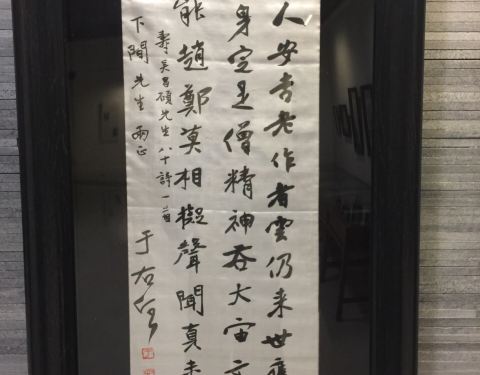 人安吉老作者雲仍来世
身定是僧精神吞大宙
能趙鄭莫相擬聲聞真未
壽吴昌碩先生八十詩一首
下間先生兩正
于右任